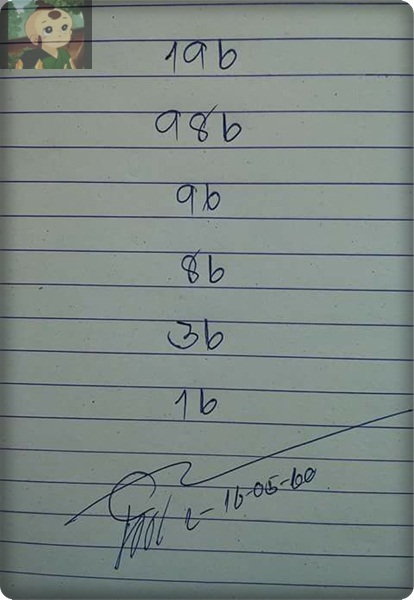 196
986
96
86
36
16
16-05-60